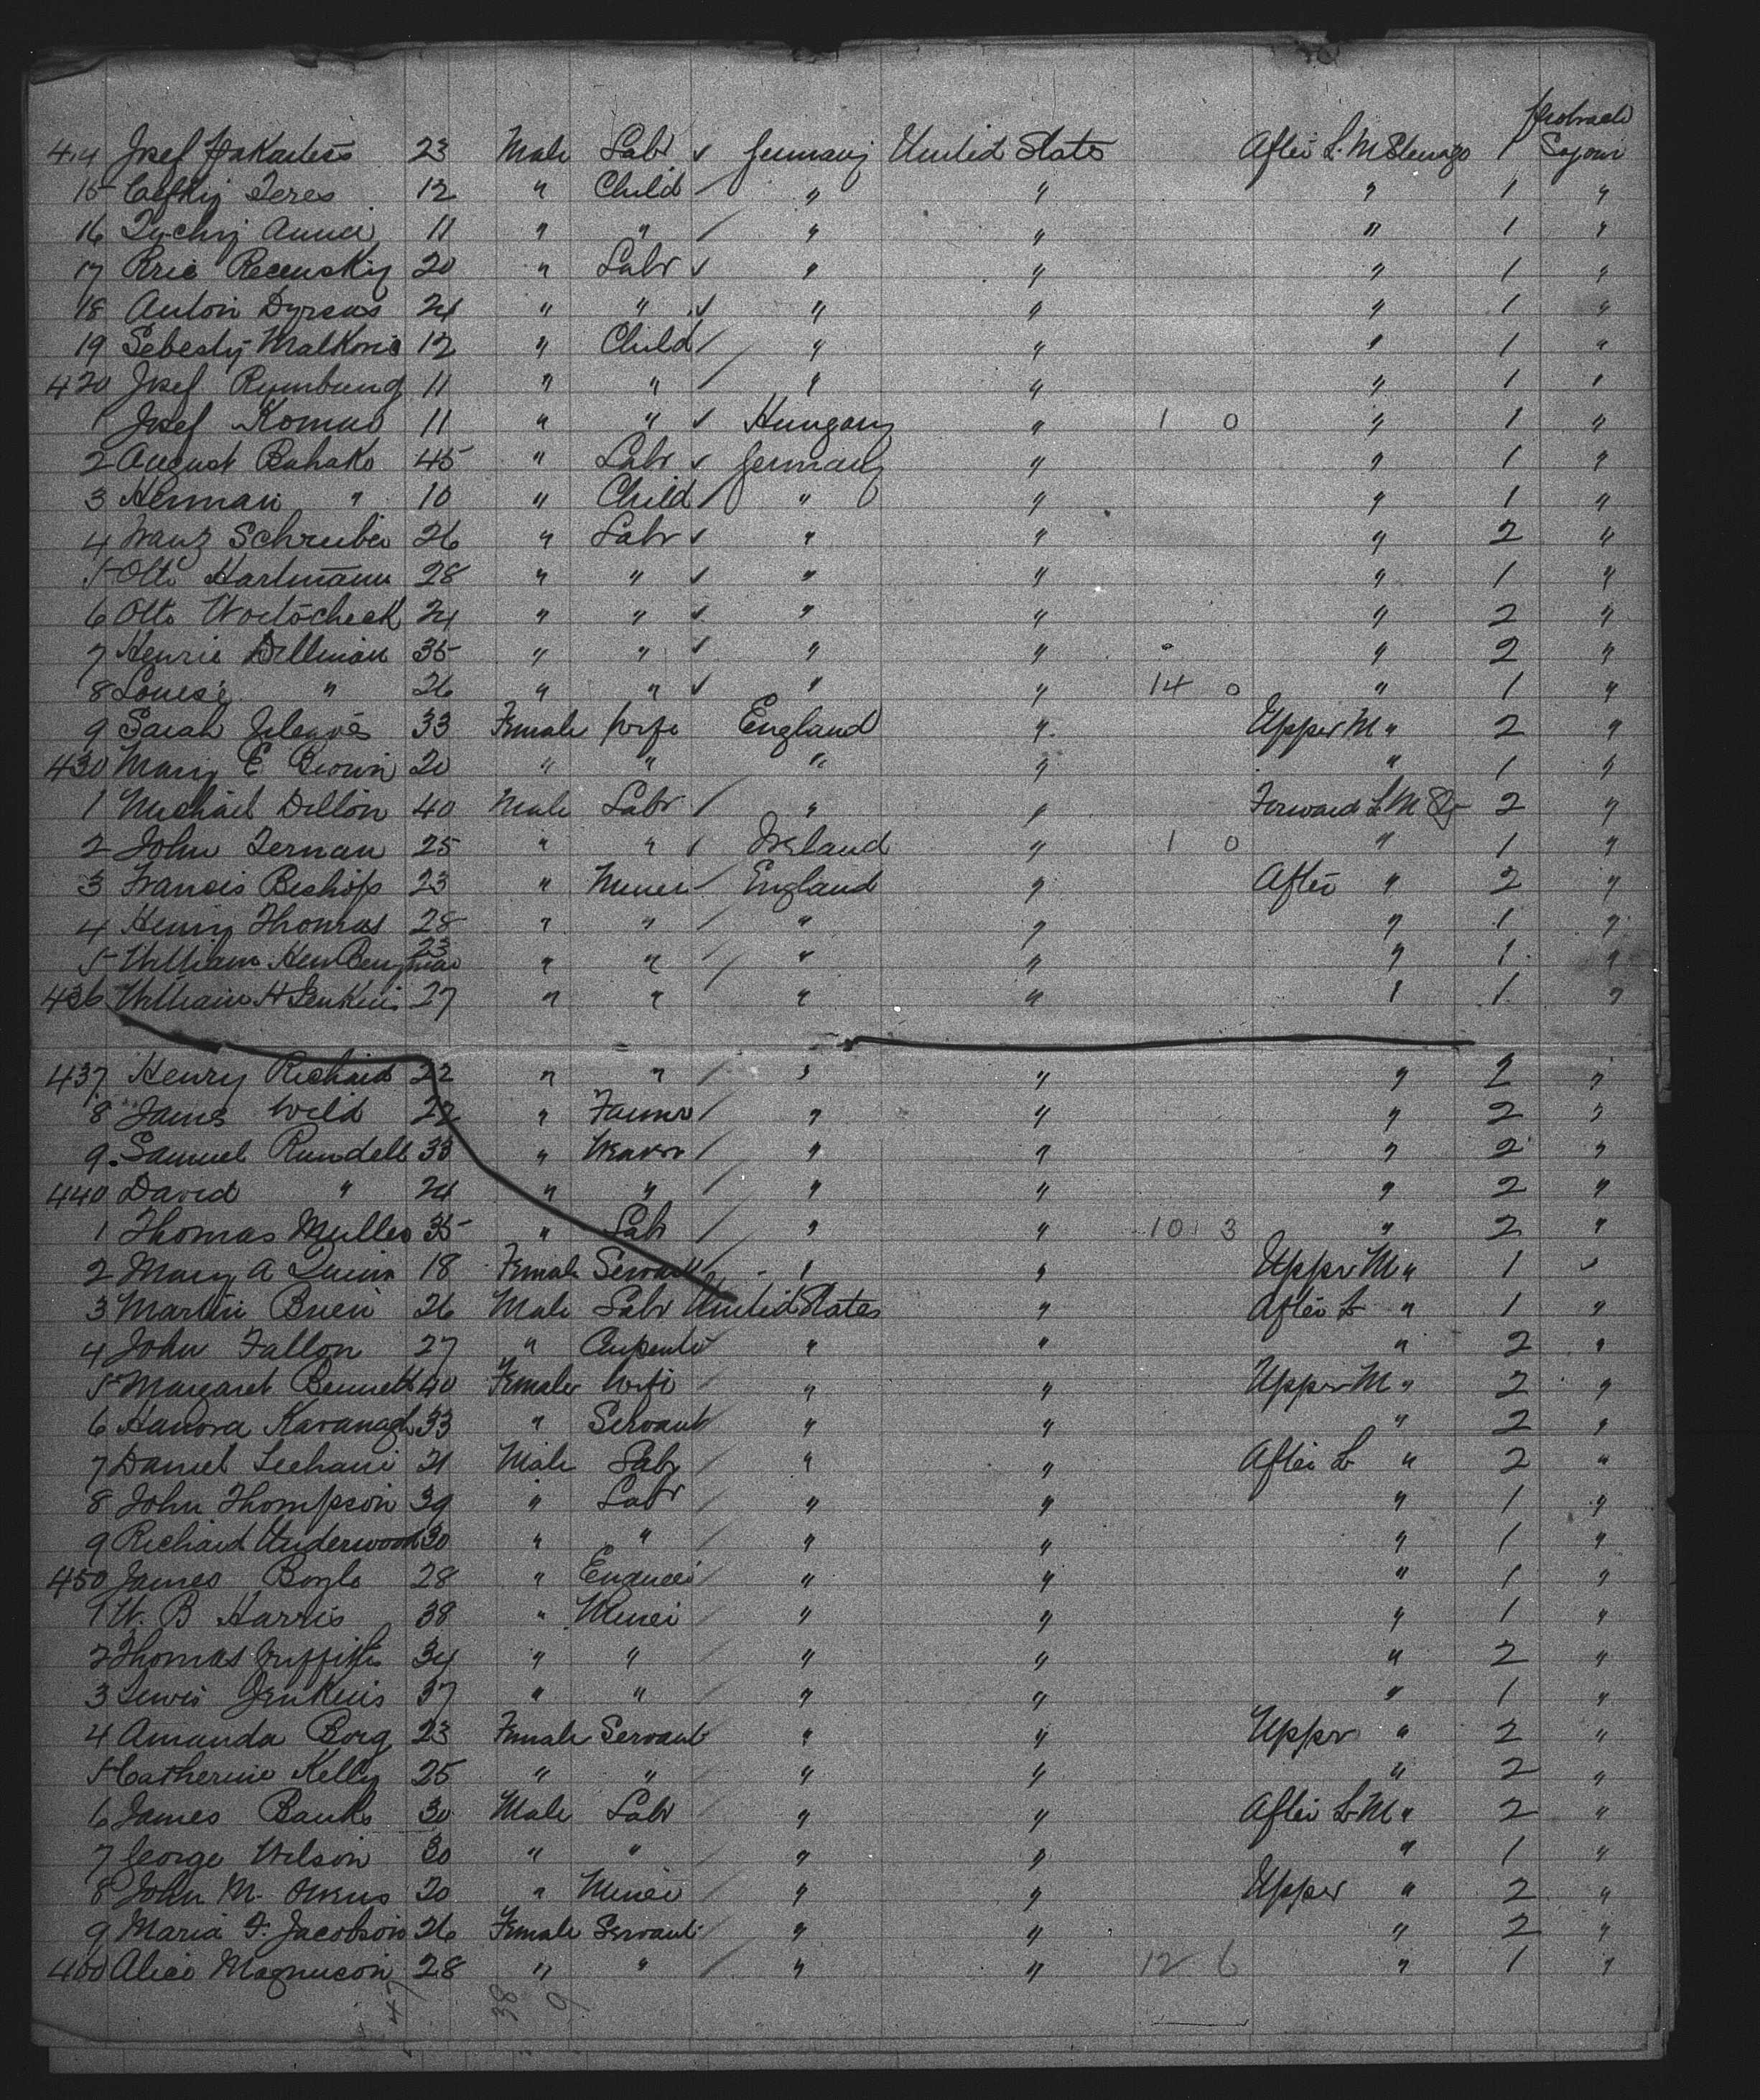 Protracted
414 Josef 23 Male Labr ✓ Germany United States After L. M Steerage 1 Sojour
15 Teres 12 " Child / " " " 1 "
16 Anna 11 " " / " " " 1 "
17 Recensky 20 " Labr ✓ " " " 1 "
18 Anton 24 " " ✓ " " " 1 "
19 Sebesty Malkovis 12 " Child / " " " 1 "
420 Josef 11 " " / " " " 1 "
1 Josef Komas 11 " " ✓ Hungary " 1 0 " 1 "
2 August Bahako 45 " Labr ✓ Germany " " 1 "
3 Herman " 10 " Child / " " " 1 "
4 Franz Schreiber 26 " Labr ✓ " " " 2 "
5 Otto Hartmann 28 " " ✓ " " " 1 "
6 Otto Woitscheck 24 " " ✓ " " " 2 "
7 Henrie Dillman 35 " " ✓ " " " 2 "
8 Louise " 26 " " ✓ " " 14 0 " 1 "
9 Sarah 33 Female Wife England " Upper M " 2 "
430 Mary E Brown 20 " " " " " 1 "
1 Michael Dillon 40 Male Labr / " " Forward L M Stg 2 "
2 John Ternan 25 " " ✓ Ireland " 1 0 " 1 "
3 Francis Bishop 23 " Miner / England " After " 2 "
4 Henry Thomas 28 " " / " " " 1 "
5 William Hen Benjman 23 " " / " " " 1 "
436 William H Jenkins 27 " " " " " 1 "
437 Henry Richard 22 " " / " " " 2 "
8 James Wild 22 " Farmr / " " " 2 "
9 Samuel Rundell 33 " Weavr / " " " 2 "
440 David " 24 " " / " " " 2 "
1 Thomas Mulles 35 " Labr / " " 10 3 " 2 "
2 Mary A Quinn 18 Female Servant " " Upper M " 1 "
3 Martin Brien 26 Male Labr United States " After L " 1 "
4 John Fallon 27 " Carpenter " " " 2 "
5 Margaret Bennett 40 Female Wife / " " Upper M " 2 "
6 Hanora Kavanagh 33 " Servant " " " 2 "
7 Daniel Leehani 21 Male Labr / " " After L " 2 "
8 John Thompson 39 " Labr / " " " 1 "
9 Richard Underwood 30 " " / " " " 1 "
450 James Boyle 28 " Engineer / " " " 1 "
1 W. B Harris 38 " Miner / " " " 1 "
2 Thomas Griffiths 34 " " " " " 2 "
3 Lewis Jenkins 37 " " / " " " 1 "
4 Amanda Borg 23 Female Servant " " Upper " 2 "
5 Catherine Kelly 25 " " " " " 2 "
6 James Banks 30 Male Labr / " " After L M " 2 "
7 George Wilson 30 " " " " " 1 "
8 John M. Owens 20 " Miner / " " Upper " 2 "
9 Maria F. Jacobson 26 Female Servant " " " 2 "
460 Alice Magnuson 28 " " / " " 12 6 " 1 "
47 38 9